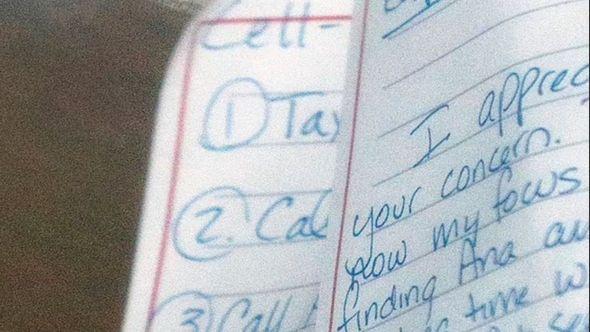 Cell-
① Tax
②. Call
③ Call
I apprec
your concern.
now my focus
finding Ana an
time w